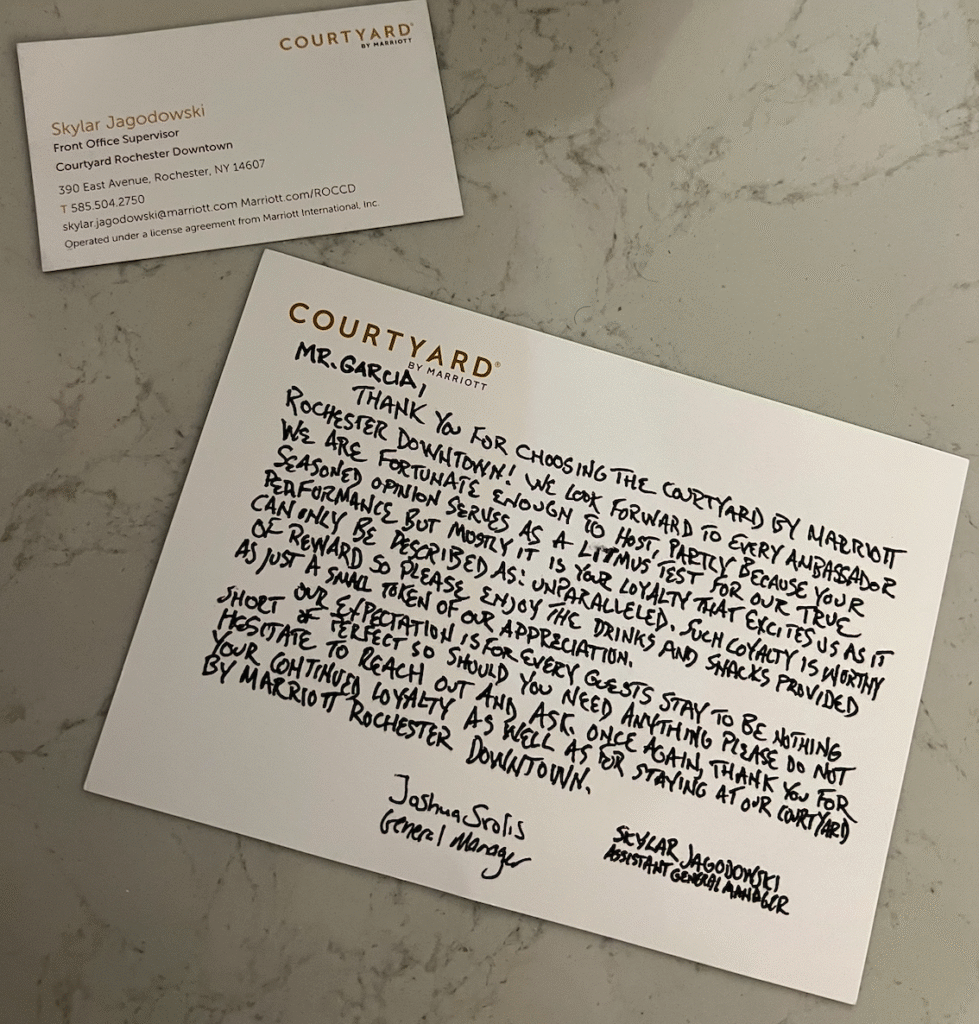 COURTYARD®
BY MARRIOTT
Skylar Jagodowski
Front Office Supervisor
Courtyard Rochester Downtown
390 East Avenue, Rochester, NY 14607
T 585.504.2750
skylar.jagodowski@marriott.com Marriott.com/ROCCD
Operated under a license agreement from Marriott International, Inc.
COURTYARD®
BY MARRIOTT
MR. GARCIA,
THANK YOU FOR CHOOSING THE COURTYARD BY MARRIOTT
ROCHESTER DOWNTOWN! WE LOOK FORWARD TO EVERY AMBASSADOR
WE ARE FORTUNATE ENOUGH TO HOST, PARTLY BECAUSE YOUR
SEASONED OPINION SERVES AS A LITMUS TEST FOR OUR TRUE
PERFORMANCE BUT MOSTLY IT IS YOUR LOYALTY THAT EXCITES US AS IT
CAN ONLY BE DESCRIBED AS: UNPARALLELED. SUCH LOYALTY IS WORTHY
OF REWARD SO PLEASE ENJOY THE DRINKS AND SNACKS PROVIDED
AS JUST A SMALL TOKEN OF OUR APPRECIATION.
OUR EXPECTATION IS FOR EVERY GUESTS STAY TO BE NOTHING
SHORT OF PERFECT SO SHOULD YOU NEED ANYTHING PLEASE DO NOT
HESITATE TO REACH OUT AND ASK. ONCE AGAIN, THANK YOU FOR
YOUR CONTINUED LOYALTY AS WELL AS FOR STAYING AT OUR COURTYARD
BY MARRIOTT ROCHESTER DOWNTOWN.
Joshua
General Manager
SKYLAR JAGODOWSKI
ASSISTANT GENERAL MANAGER